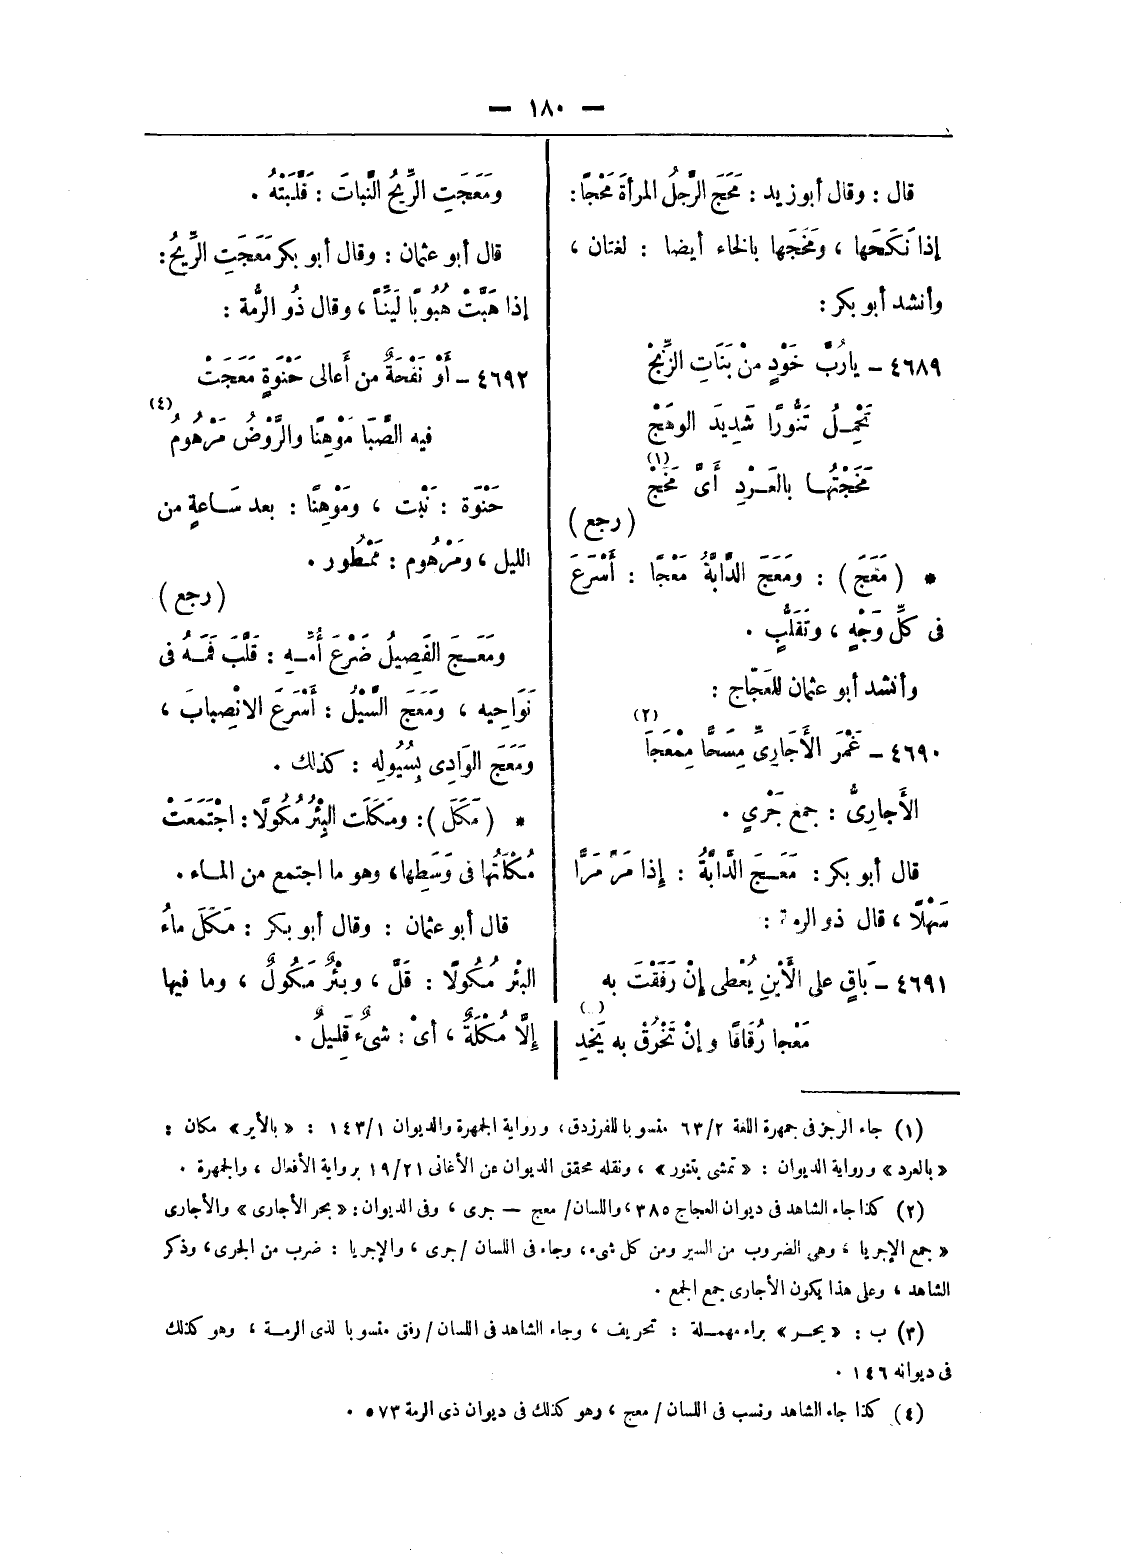 — ١٨٠ —
قال : وقال أبو زيد : مَحَجَ الرَّجُل المرأةَ مَحْجًا :
إذا نَكَحَها ، ومَخَجَها بالخاء أيضا : لغتان ،
وأنشد أبو بكر :
٤٦٨٩ – يارُبَّ خَوْدٍ منْ بَنَاتِ الزِّنْجْ
تَحْمِلُ تَنُّورًا شَدِيدَ الوهَجْ
مَخَجْتُها بالعَرْدِ أىَّ مَخْجْ (١)
( رجع )
* ( مَعَجَ ) : ومَعَجَ الدَّابَّةُ مَعْجًا : أَسْرَعَ
فى كلِّ وَجْهٍ ، وتَقَلُّبٍ .
وأنشد أبو عثمان للعَجّاج :
٤٦٩٠ – غَمْرَ الأَجَارِىِّ مِسَحًّا مِمْعَجَا (٢)
الأَجارِىُّ : جمع جَرْيٍ .
قال أبو بكر : مَعَجَ الدَّابَّةُ : إذا مَرَّ مَرًّا
سَهْلًا ، قال ذو الرمة :
٤٦٩١ – بَاقٍ على الأَيْنِ يُعْطى إنْ رَفَقْتَ به
مَعْجا رُقَاقًا وإنْ تَخْرُقْ به يَخِدِ
ومَعَجَتِ الرِّيحُ النَّباتَ : قَلَّبَتْهُ .
قال أبو عثمان : وقال أبو بكر مَعَجَتِ الرِّيحُ :
إذا هَبَّتْ هُبُوبًا لَيِّنًا ، وقال ذُو الرُّمة :
٤٦٩٢ – أَوْ نَفْحَةٌ من أَعالى حَنْوَةٍ مَعَجَتْ
فيه الصَّبَا مَوْهِنًا والرَّوْضُ مَرْهُومُ (٤)
حَنْوَة : نَبْت ، ومَوْهِنًا : بعد سَاعةٍ من
الليل ، ومَرْهُوم : مَمْطُور .
( رجع )
ومَعَجَ الفَصِيلُ ضَرْعَ أُمِّهِ : قَلَّبَ فَمَهُ فى
نَوَاحِيه ، ومَعَجَ السَّيْلُ : أَسْرَعَ الانْصِبابَ ،
ومَعَجَ الوَادِى بِسُيُولِه : كذلك .
* ( مَكَلَ ) : ومَكَلَت البِئْرُ مُكُولًا : اجْتَمَعَتْ
مُكْلَتُها فى وَسَطِها ، وهو ما اجتمع من الماء .
قال أبو عثمان : وقال أبو بكر : مَكَلَ ماءُ
البئر مُكُولًا : قَلَّ ، وبئْرٌ مَكُولٌ ، وما فيها
إلَّا مُكْلَةٌ ، أىْ : شىءٌ قَلِيلٌ .
(١) جاء الرجز فى جمهرة اللغة ٦٣/٢ منسوبا للفرزدق ، ورواية الجمهرة والديوان ١٤٣/١ : « بالأير » مكان :
« بالعرد » ورواية الديوان : « تمشى بتنور » ، ونقله محقق الديوان عن الأغانى ١٩/٢١ برواية الأفعال ، والجمهرة .
(٢) كذا جاء الشاهد فى ديوان العجاج ٣٨٥ ، واللسان/ معج – جرى ، وفى الديوان : « بحر الأجارى » والأجارى
« جمع الإجريا ، وهى الضروب من السير ومن كل شىء ، وجاء فى اللسان / جرى ، والإجريا : ضرب من الجرى ، وذكر
الشاهد ، وعلى هذا يكون الأجارى جمع الجمع .
(٣) ب : « يحر » براء مهملة : تحريف ، وجاء الشاهد فى اللسان / رفق منسوبا لذى الرمة ، وهو كذلك
فى ديوانه ١٤٦ .
(٤) كذا جاء الشاهد ونسب فى اللسان / معج ، وهو كذلك فى ديوان ذى الرمة ٥٧٣ .